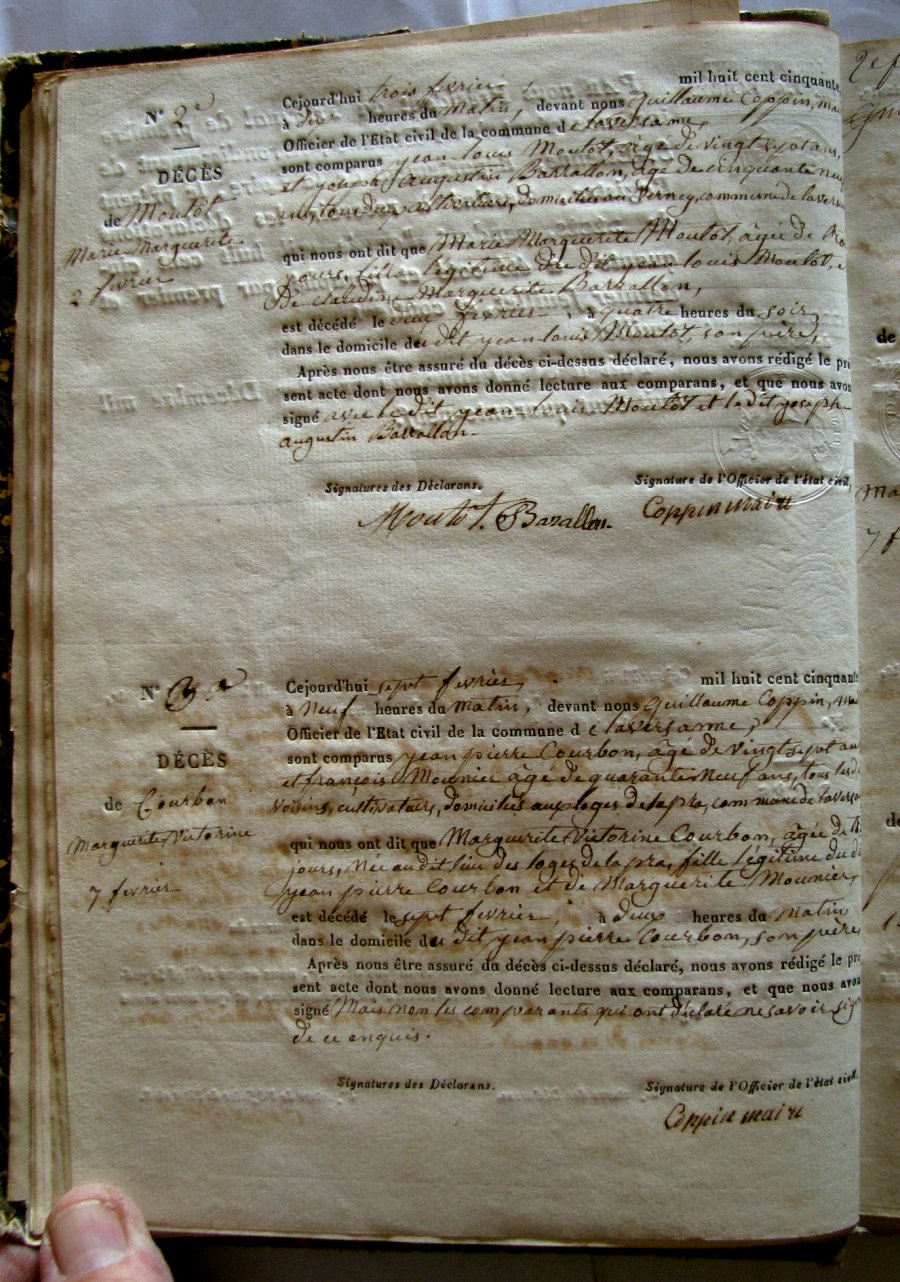 N° 2e
DÉCÈS
de Moutot
Marie Marguerite
2 fevrier
Cejourd'hui trois fevrier mil huit cent cinquante
à dix heures du matin, devant nous Guillaume Coppin, mai
Officier de l'Etat civil de la commune de laversanne,
sont comparus jean louis Moutot, âgé de vingt sept ans,
et joseph augustin Barrallon, âgé de cinquante neuf
ans, tous deux cultivateurs, domiciliés au Verney, commune de laversa
qui nous ont dit que Marie Marguerite Moutot, âgée de
jours, fille légitime du dit jean louis Moutot, e
De claudine Marguerite Barrallon,
est décédé le deux fevrier, à quatre heures du soir,
dans le domicile du dit jean louis Moutot, son père,
Après nous être assuré du décès ci-dessus déclaré, nous avons rédigé le pré
sent acte dont nous avons donné lecture aux comparans, et que nous avon
signé avec le dit jean louis Moutot et le dit joseph
augustin Barrallon.
Signatures des Déclarans. Signature de l'Officier de l'état civil,
Moutot. Barallon. Coppin maire
N° 3.e
DÉCÈS
de Courbon
Marguerite Victorine
7 fevrier
Cejourd'hui sept fevrier, mil huit cent cinquante
à Neuf heures du matin, devant nous Guillaume Coppin, mai
Officier de l'Etat civil de la commune de laversanne,
sont comparus jean pierre Courbon, âgé de vingt sept an
et françois Mounier âgé de quarante Neuf ans, tous les de
voisins, cultivateurs, domiciliés aux loges de la pra, commune de laversa
qui nous ont dit que Marguerite Victorine Courbon, âgée de
jours, Née au dit lieu des loges de la pra, fille légitime du di
jean pierre Courbon et de Marguerite Mounier,
est décédé le sept fevrier, à deux heures du Matin,
dans le domicile du dit jean pierre Courbon, son père
Après nous être assuré du décès ci-dessus déclaré, nous avons rédigé le pré
sent acte dont nous avons donné lecture aux comparans, et que nous avon
signé Mais non les comparants qui ont déclaré ne savoir sign
de ce enquis.
Signatures des Déclarans. Signature de l'Officier de l'état civil.
Coppin maire